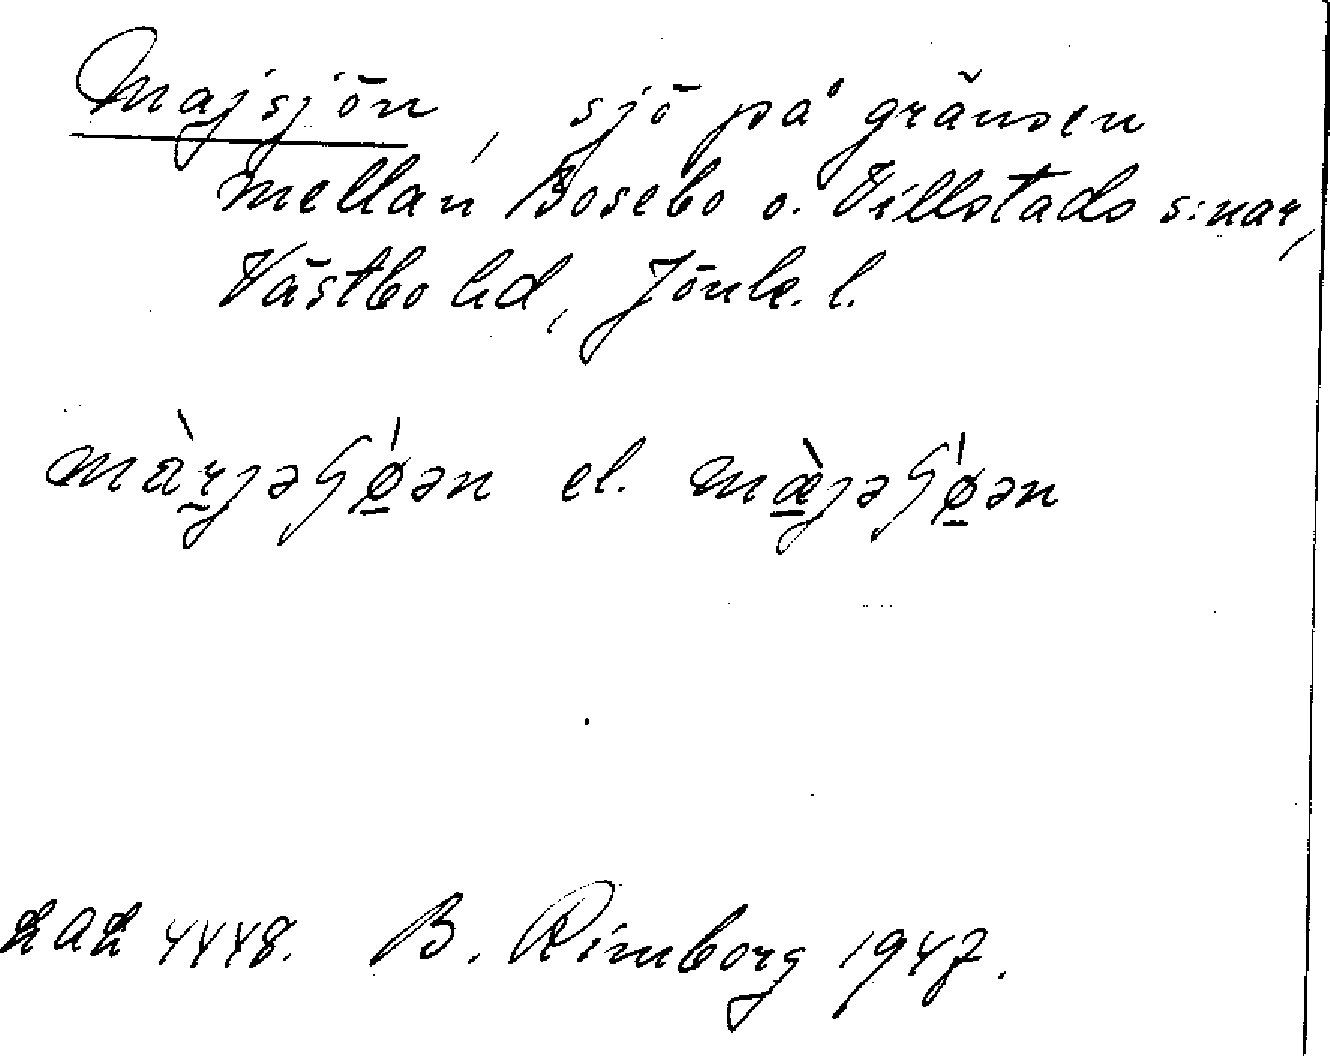 Majsjön, sjö på gränsen
mellan Bosebo o. Villstads s:nar,
Västbo hd, Jönk. l.
màrjəʃǿən el. mæ̀jəʃǿən
LAL 4448. B. Rimborg 1947.